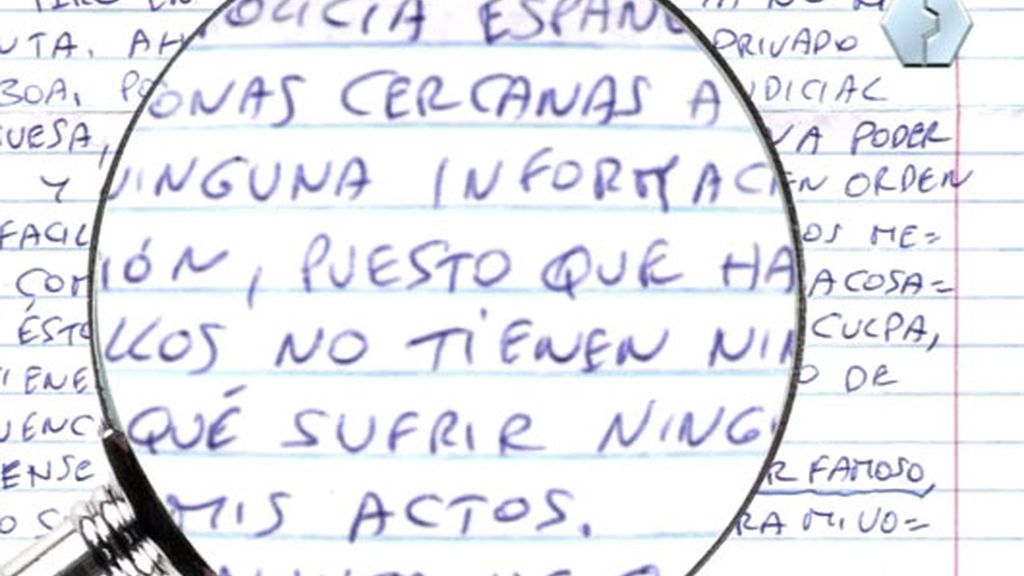 OLICIA ESPAÑO
UTA. AH PRIVADO
BOA, PO ONAS CERCANAS A DICIAL
GUESA, VA PODER
Y NINGUNA INFORMAC EN ORDEN
FACIL OS ME=
COM IÓN, PUESTO QUE HA ACOSA=
ÉSTO LLOS NO TIENEN NIN CULPA,
IENE O DE
UENC QUÉ SUFRIR NING
ENSE R FAMOSO,
O S MIS ACTOS. RA MI VO=